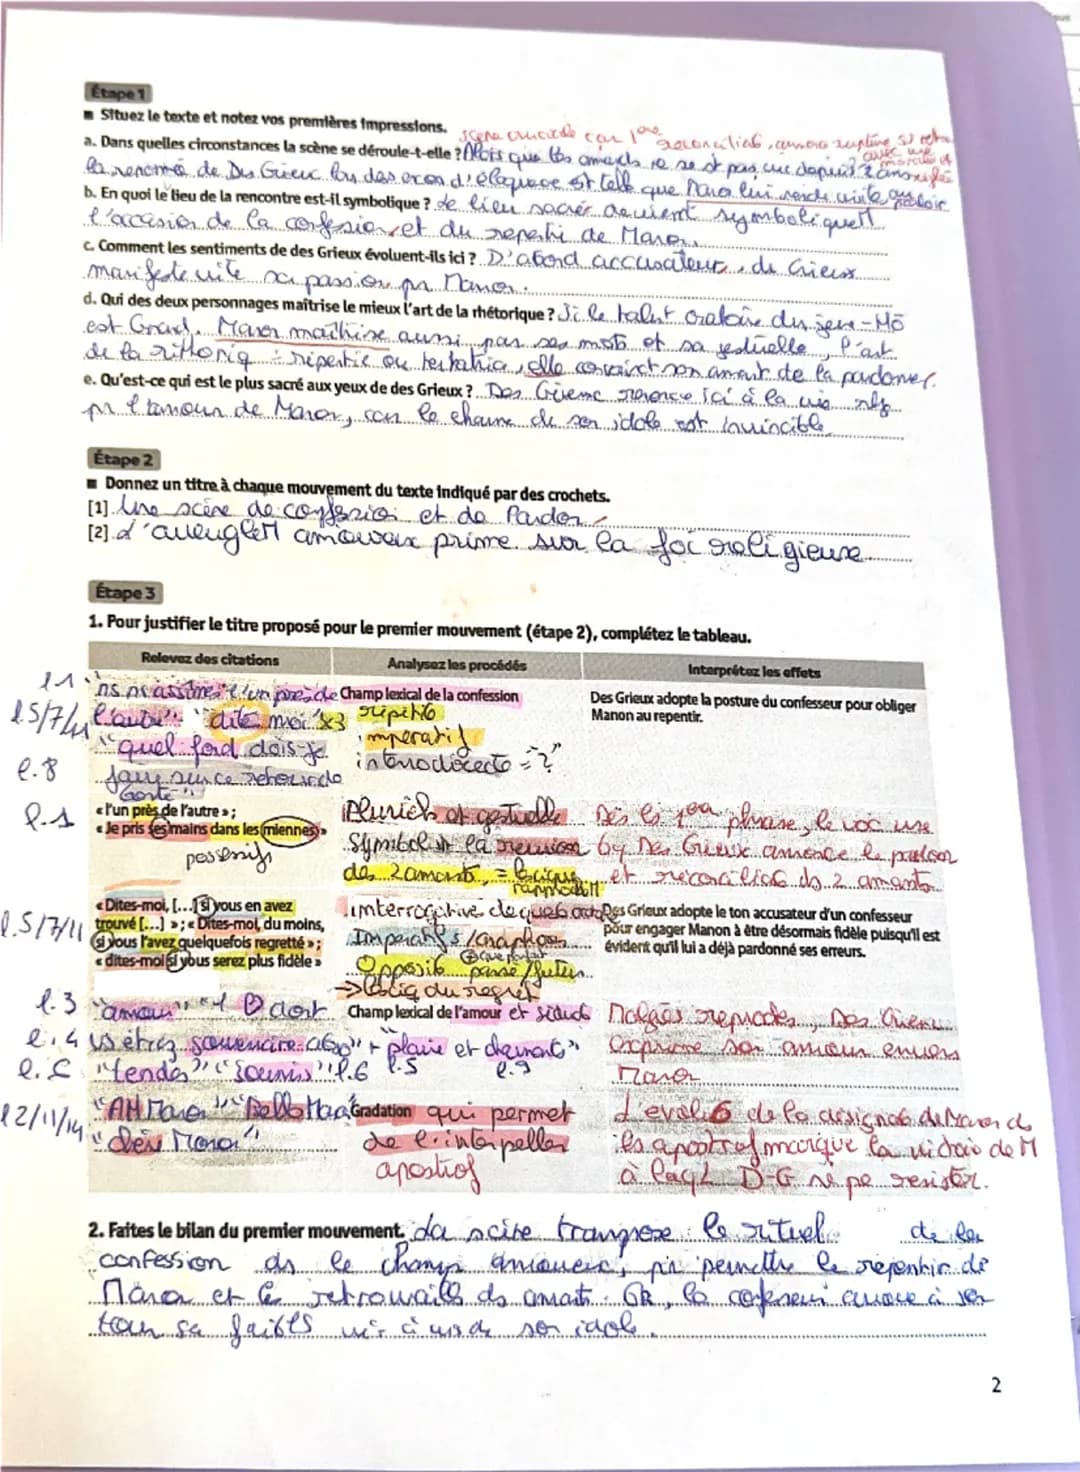 Étape 1
■ Situez le texte et notez vos premières impressions.
scène cruciale car 1ère
a. Dans quelles circonstances la scène se déroule-t-elle ? Alors que les amants ne se st pas vue depuis 2 ans
la renommée de Des Grieux lors des exos d'éloquence est telle que Manon lui rends visite au parloir
b. En quoi le lieu de la rencontre est-il symbolique ? Le lieu sacré devient symboliquemt
l'occasion de la confession et du repenti de Manon.
c. Comment les sentiments de des Grieux évoluent-ils ici ? D'abord accusateur, des Grieux
manifeste vite sa passion pr Manon.
d. Qui des deux personnages maîtrise le mieux l'art de la rhétorique ? Si le talent oratoire du jeune
est Grand, Manon maîtrise aussi par ses mots et sa gestuelle, l'art
de la réthoriq : repentie ou tentatrice, elle convainct son amant de la pardonner.
e. Qu'est-ce qui est le plus sacré aux yeux de des Grieux ? Des Grieux renonce ici à la vie
pr l'amour de Manon, car le charme de son idole est invincible
Étape 2
■ Donnez un titre à chaque mouvement du texte indiqué par des crochets.
[1] Une scène de confession et de Pardon
[2] L'aveuglemt amoureux prime sur la foi religieuse
Étape 3
1. Pour justifier le titre proposé pour le premier mouvement (étape 2), complétez le tableau.
Relevez des citations Analysez les procédés Interprétez les effets
l1 "ns ns assîmes l'un près de Champ lexical de la confession Des Grieux adopte la posture du confesseur pour obliger
l.5/7/11 l'autre" "dites moi" x3 répétitö Manon au repentir.
"quel fond dois-je impératif
l.8 faire sur ce retour de interro directe = "?"
bonté"
l.1 « l'un près de l'autre » ; Pluriels et gestuelle Dès la 1ère phrase, le voc use
« Je pris ses mains dans les miennes » Symbol la réunion by Des Grieux annonce le pardon
possessifs des 2 amants, = et réconciliaö ds 2 amants
rapprochemt
« Dites-moi, [...] si vous en avez interrogatives Des Grieux adopte le ton accusateur d'un confesseur
l.5/7/11 trouvé [...] » ; « Dites-moi, du moins, Impératifs / anaphore pour engager Manon à être désormais fidèle puisqu'il est
si vous l'avez quelquefois regretté » ; évident qu'il lui a déjà pardonné ses erreurs.
« dites-moi si vous serez plus fidèle » Oppositö passé/futur
→ du regret
l.3 "amour" dont Champ lexical de l'amour et séduct Malgrés reproches, Des Grieux
l.4 vs étiez souveraine abso" + plaire et charmants" exprime son amour envers
"tendes" "soumis" l.6 l.5 l.9 Manon
l2/11/14 "AH Manon" "Belle Manon" Gradation qui permet L'évoluö de la désignaö de Manon ds
"chère Manon" de l'interpeller les apostrof marque la victoire de M
apostrof à laql D-G ne pe resister.
2. Faites le bilan du premier mouvement. La scène transpose le rituel de la
confession ds le champ amoureux, pr permettre le repentir de
Manon et les retrouvailles ds amants. Or, le confesseur avoue à son
tour sa faibless vis à vis de son idole.
2